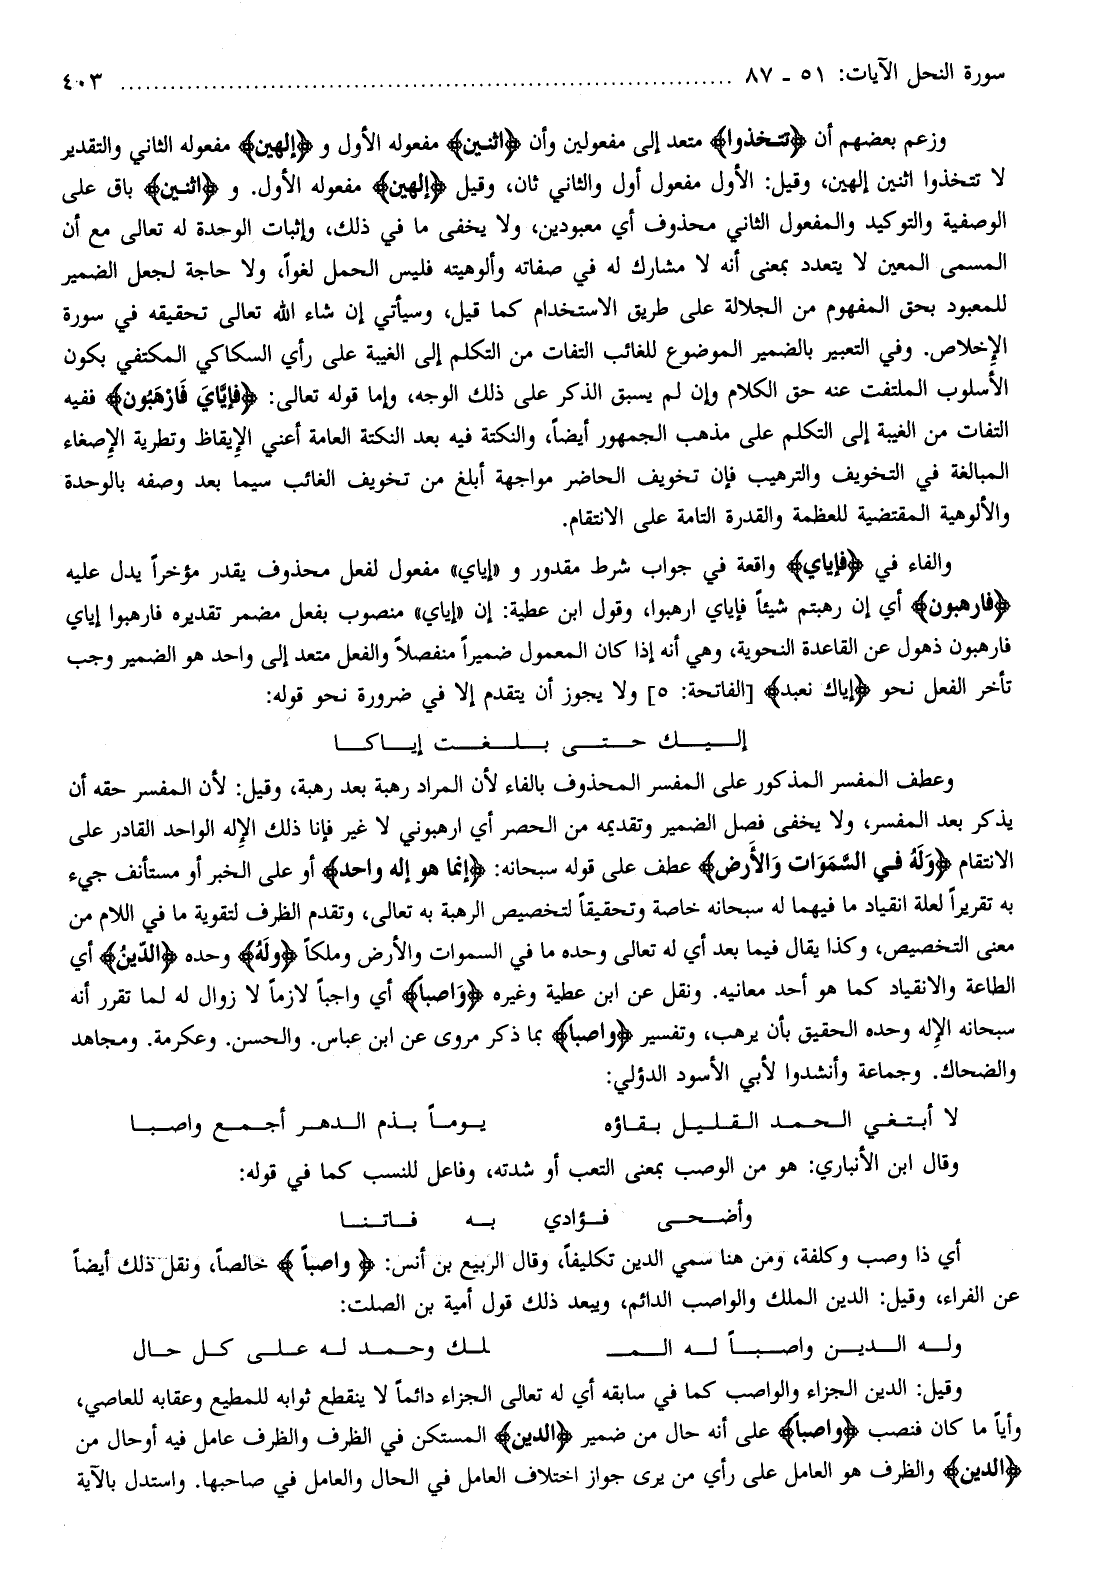 سورة النحل الآيات: ٥١ ـ ٨٧ ................................................ ٤٠٣
وزعم بعضهم أن ﴿تتخذوا﴾ متعد إلى مفعولين وأن ﴿اثنين﴾ مفعوله الأول و ﴿إلهين﴾ مفعوله الثاني والتقدير
لا تتخذوا اثنين إلهين، وقيل: الأول مفعول أول والثاني ثان، وقيل ﴿إلهين﴾ مفعوله الأول. و ﴿اثنين﴾ باق على
الوصفية والتوكيد والمفعول الثاني محذوف أي معبودين، ولا يخفى ما في ذلك، وإثبات الوحدة له تعالى مع أن
المسمى المعين لا يتعدد بمعنى أنه لا مشارك له في صفاته وألوهيته فليس الحمل لغواً، ولا حاجة لجعل الضمير
للمعبود بحق المفهوم من الجلالة على طريق الاستخدام كما قيل، وسيأتي إن شاء الله تعالى تحقيقه في سورة
الإخلاص. وفي التعبير بالضمير الموضوع للغائب التفات من التكلم إلى الغيبة على رأي السكاكي المكتفي بكون
الأسلوب الملتفت عنه حق الكلام وإن لم يسبق الذكر على ذلك الوجه، وإما قوله تعالى: ﴿فَإيَّايَ فَارْهَبُون﴾ ففيه
التفات من الغيبة إلى التكلم على مذهب الجمهور أيضاً، والنكتة فيه بعد النكتة العامة أعني الإيقاظ وتطرية الإصغاء
المبالغة في التخويف والترهيب فإن تخويف الحاضر مواجهة أبلغ من تخويف الغائب سيما بعد وصفه بالوحدة
والألوهية المقتضية للعظمة والقدرة التامة على الانتقام.
والفاء في ﴿فإياي﴾ واقعة في جواب شرط مقدور و «إياي» مفعول لفعل محذوف يقدر مؤخراً يدل عليه
﴿فارهبون﴾ أي إن رهبتم شيئاً فإياي ارهبوا، وقول ابن عطية: إن «إياي» منصوب بفعل مضمر تقديره فارهبوا إياي
فارهبون ذهول عن القاعدة النحوية، وهي أنه إذا كان المعمول ضميراً منفصلاً والفعل متعد إلى واحد هو الضمير وجب
تأخر الفعل نحو ﴿إياك نعبد﴾ [الفاتحة: ٥] ولا يجوز أن يتقدم إلا في ضرورة نحو قوله:
إليك حتى بلغت إياكا
وعطف المفسر المذكور على المفسر المحذوف بالفاء لأن المراد رهبة بعد رهبة، وقيل: لأن المفسر حقه أن
يذكر بعد المفسر، ولا يخفى فصل الضمير وتقديمه من الحصر أي ارهبوني لا غير فإنا ذلك الإله الواحد القادر على
الانتقام ﴿وَلَهُ في السَّمَوَات وَالأَرض﴾ عطف على قوله سبحانه: ﴿إنما هو إله واحد﴾ أو على الخبر أو مستأنف جيء
به تقريراً لعلة انقياد ما فيهما له سبحانه خاصة وتحقيقاً لتخصيص الرهبة به تعالى، وتقدم الظرف لتقوية ما في اللام من
معنى التخصيص، وكذا يقال فيما بعد أي له تعالى وحده ما في السموات والأرض وملكاً ﴿ولَهُ﴾ وحده ﴿الدّينُ﴾ أي
الطاعة والانقياد كما هو أحد معانيه. ونقل عن ابن عطية وغيره ﴿وَاصباً﴾ أي واجباً لازماً لا زوال له لما تقرر أنه
سبحانه الإله وحده الحقيق بأن يرهب، وتفسير ﴿واصباً﴾ بما ذكر مروى عن ابن عباس. والحسن. وعكرمة. ومجاهد
والضحاك. وجماعة وأنشدوا لأبي الأسود الدؤلي:
لا أبتغي الحمد القليل بقاؤه يوماً بذم الدهر أجمع واصبا
وقال ابن الأنباري: هو من الوصب بمعنى التعب أو شدته، وفاعل للنسب كما في قوله:
وأضحى فؤادي به فاتنا
أي ذا وصب وكلفة، ومن هنا سمي الدين تكليفاً، وقال الربيع بن أنس: ﴿واصباً﴾ خالصاً، ونقل ذلك أيضاً
عن الفراء، وقيل: الدين الملك والواصب الدائم، ويبعد ذلك قول أمية بن الصلت:
وله الدين واصباً له المـ لك وحمد له على كل حال
وقيل: الدين الجزاء والواصب كما في سابقه أي له تعالى الجزاء دائماً لا ينقطع ثوابه للمطيع وعقابه للعاصي،
وأياً ما كان فنصب ﴿واصباً﴾ على أنه حال من ضمير ﴿الدين﴾ المستكن في الظرف والظرف عامل فيه أوحال من
﴿الدين﴾ والظرف هو العامل على رأي من يرى جواز اختلاف العامل في الحال والعامل في صاحبها. واستدل بالآية